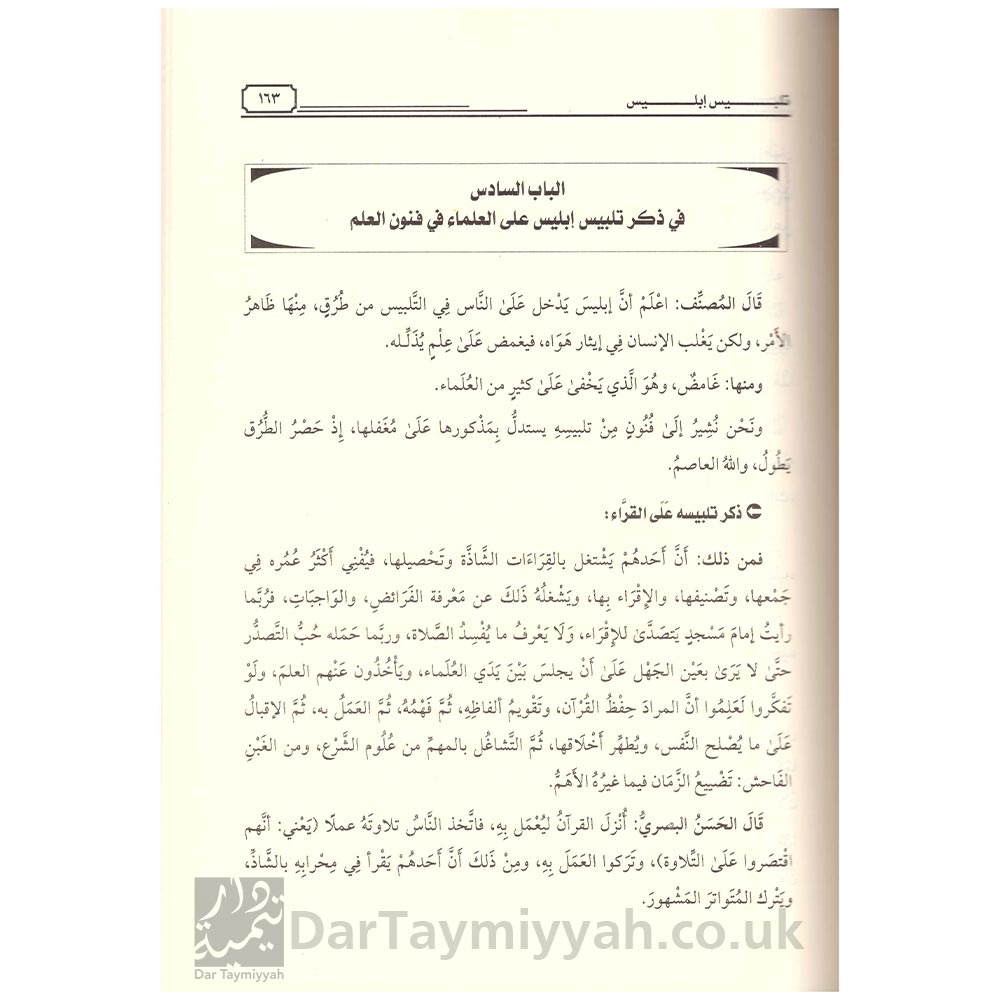 تلبـــــــيس إبلـــــــيس
١٦٣
الباب السادس
في ذكر تلبيس إبليس على العلماء في فنون العلم
قَالَ المُصنِّف: اعْلَمْ أنَّ إبليسَ يَدْخل عَلَىٰ النَّاس فِي التَّلبيس من طُرُقٍ، مِنْهَا ظَاهرُ
الأَمْر، ولكن يَغْلب الإنسان فِي إيثار هَوَاه، فيغمض عَلَىٰ عِلْمٍ يُذَلِّـله.
ومنها: غَامضٌ، وهُوَ الَّذي يَخْفىٰ عَلَىٰ كثيرٍ من العُلَماء.
ونَحْن نُشِيرُ إلَىٰ فُنُونٍ مِنْ تلبيسِهِ يستدلُّ بِمَذْكورها عَلَىٰ مُغَفلها، إذْ حَصْرُ الطُّرُق
يَطُولُ، واللهُ العاصمُ.
ذكر تلبيسه عَلَى القرَّاء:
فمن ذلك: أَنَّ أَحَدهُمْ يَشْتغل بالقِرَاءَات الشَّاذَّة وتَحْصيلها، فيُفْنِي أَكْثَرُ عُمُره فِي
جَمْعها، وتَصْنيفها، والإقْرَاء بِها، ويَشْغلُهُ ذَلكَ عن مَعْرفة الفَرَائضِ، والوَاجبَاتِ، فرُبَّما
رأيتُ إمامَ مَسْجدٍ يَتصَدَّىٰ للإقْرَاء، وَلَا يَعْرفُ ما يُفْسِدُ الصَّلاة، وربَّما حَمَله حُبُّ التَّصدُّر
حتَّىٰ لا يَرَىٰ بعَيْن الجَهْل عَلَىٰ أَنْ يجلسَ بَيْنَ يَدَي العُلَماء، ويَأْخُذُون عَنْهم العلمَ، ولَوْ
تَفكَّروا لَعَلِمُوا أنَّ المرادَ حِفْظُ القُرْآن، وتَقْويمُ ألفاظِهِ، ثُمَّ فَهْمُهُ، ثُمَّ العَمَلُ به، ثُمَّ الإقبالُ
عَلَىٰ ما يُصْلح النَّفْس، ويُطهِّر أَخْلَاقها، ثُمَّ التَّشاغُل بالمهمِّ من عُلُوم الشَّرْع، ومن الغَبْنِ
الفَاحش: تَضْييعُ الزَّمَان فيما غيرُهُ الأَهَمُّ.
قَالَ الحَسَنُ البصريُّ: أُنْزلَ القرآنُ ليُعْمَل بِهِ، فاتَّخذ النَّاسُ تلاوتَهُ عملًا (يَعْني: أنَّهم
اقْتصَروا عَلَىٰ التِّلاوة)، وتَرَكوا العَمَلَ بِهِ، ومِنْ ذَلكَ أَنَّ أَحَدهُمْ يَقْرأ فِي مِحْرابِهِ بالشَّاذِّ،
ويَتْرك المُتَواترَ المَشْهورَ.
دار تيمية
Dar Taymiyyah
DarTaymiyyah.co.uk